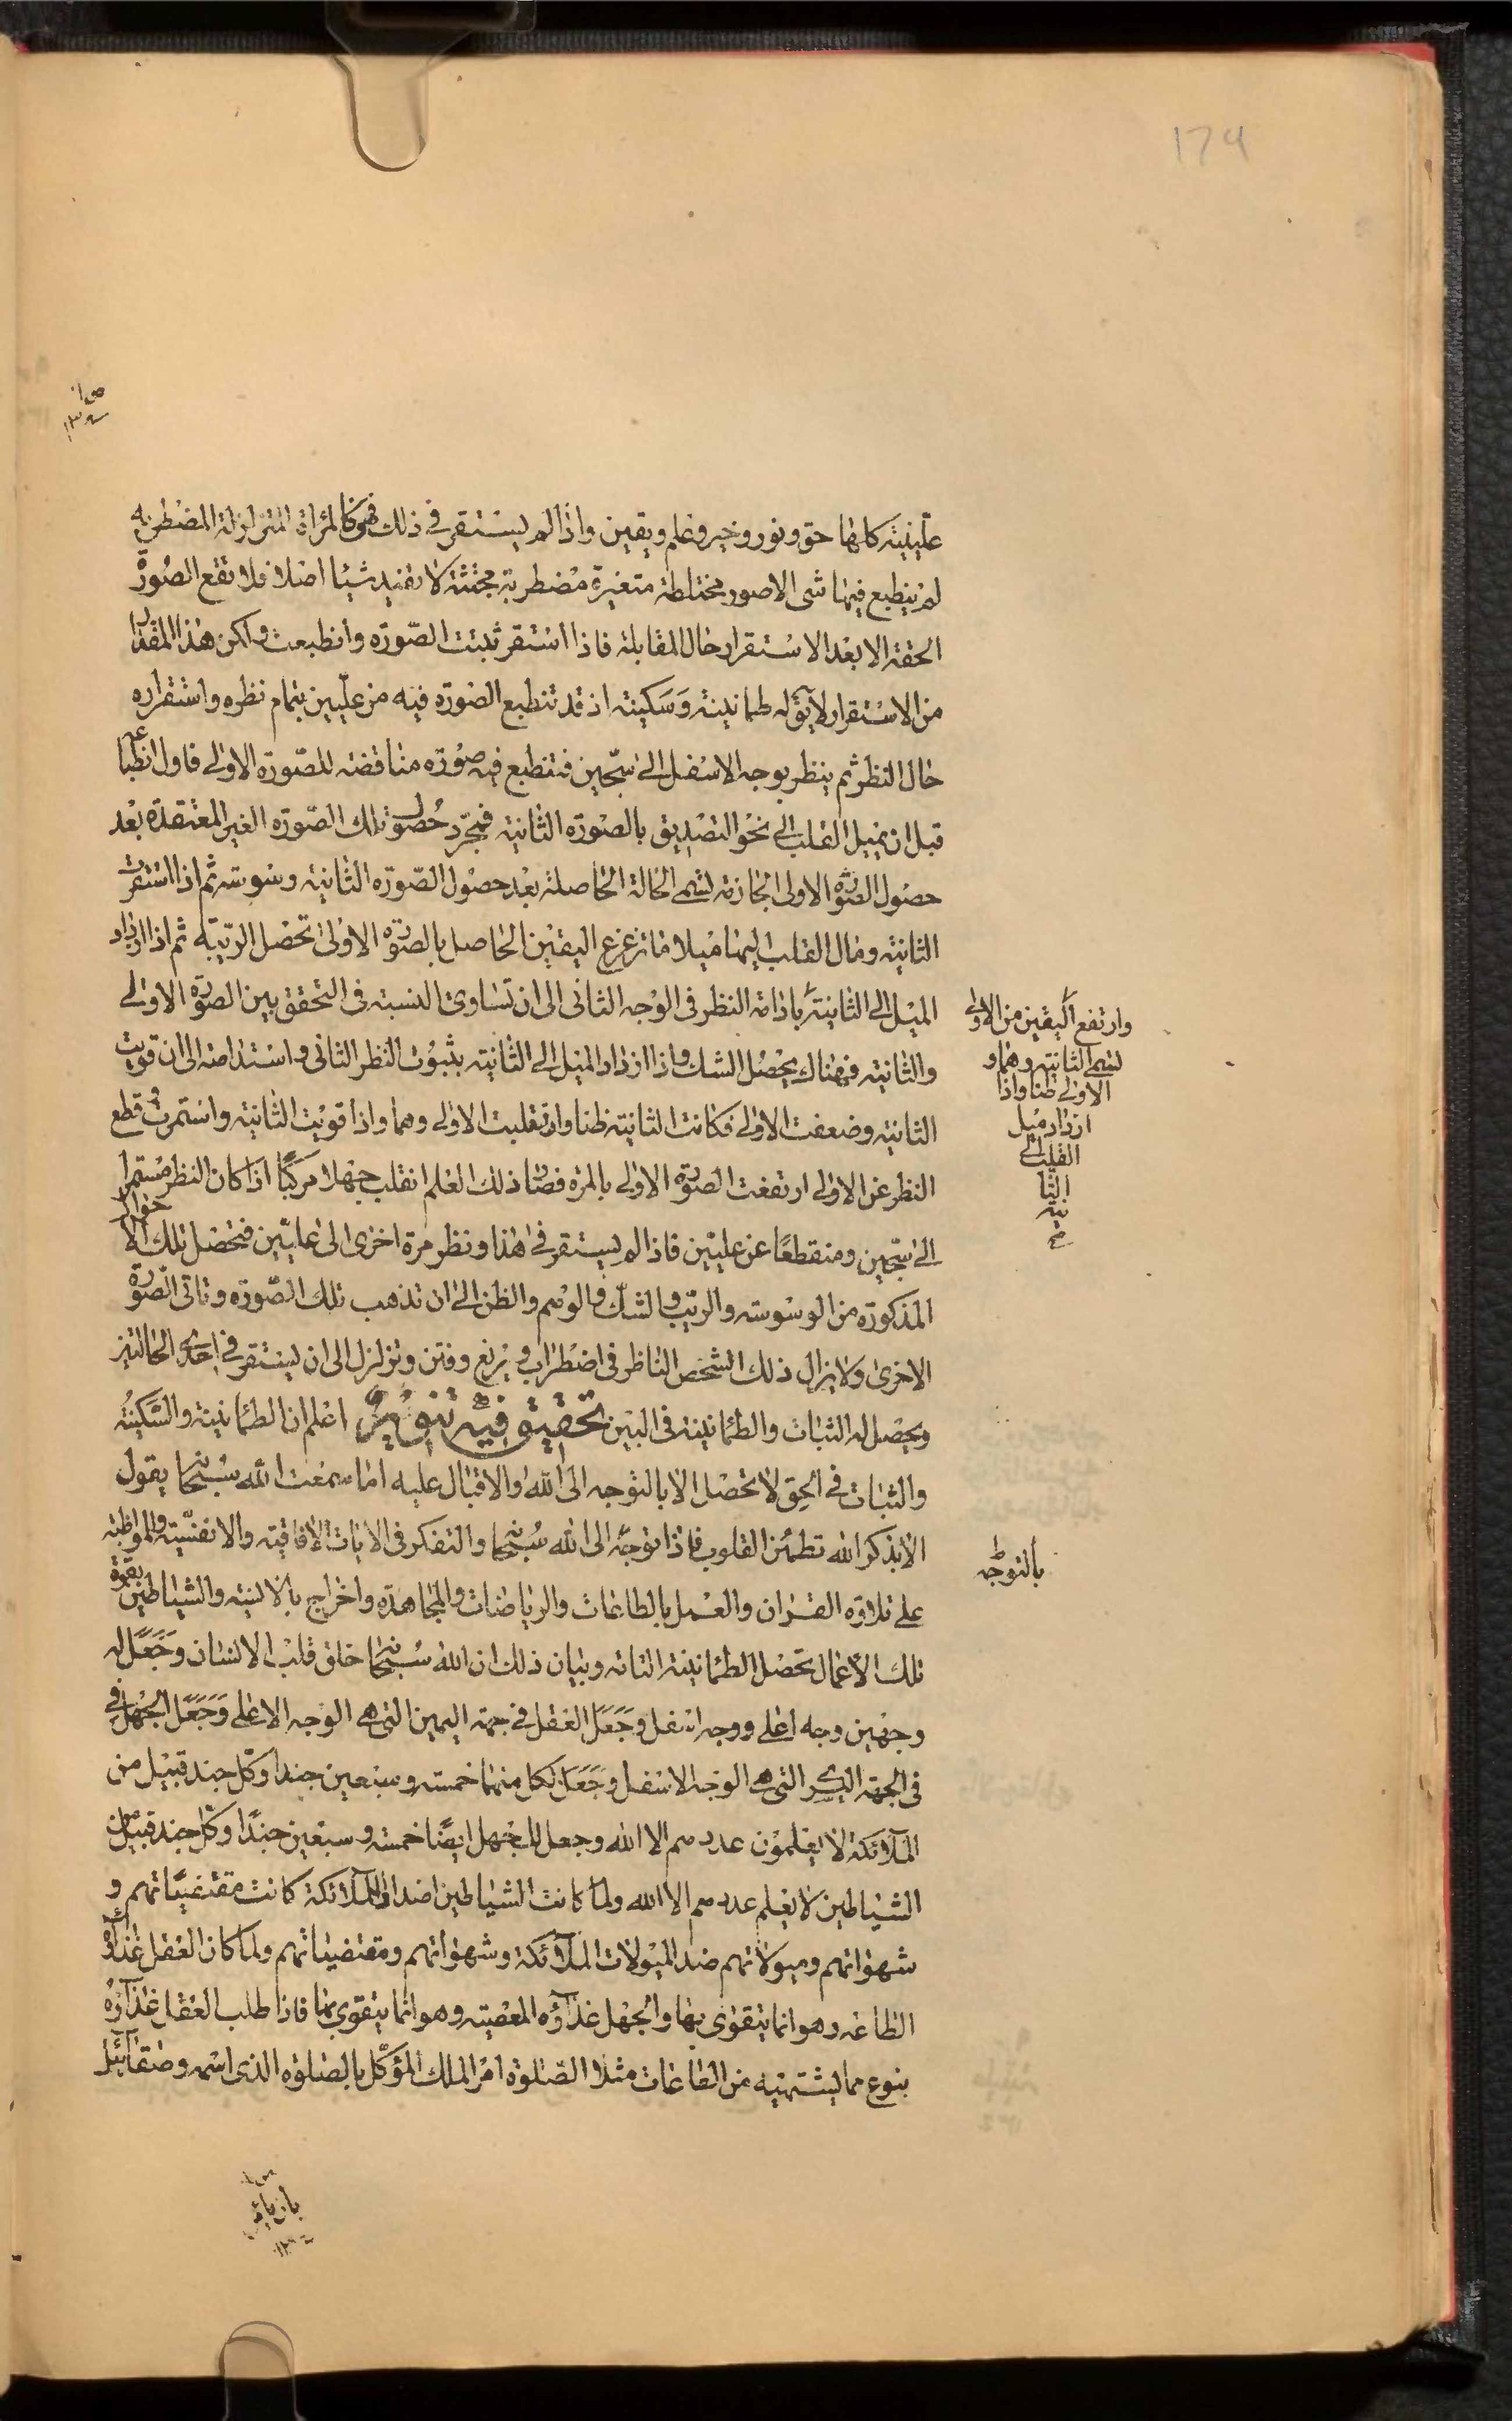 174
علّيينية كلها حق ونور وخير وعلم ويقين واذا لم يستقر في ذلك فهو كالمرآة المتزلزلة المضطربه
لم ينطبع فيها شى الا صور مختلطة متغيرة مضطربة مجتثة لا تفيد شيئا اصلا فلا تقع الصورة
الحقة الا بعد الاستقرار حال المقابلة فاذا استقر ثبتت الصّورة وانطبعت ولكن هذا المقدار
من الاستقرار لا يق له طمانينة وَسَكينة اذ قد تنطبع الصورة فيه من علّيين بتمام نظره واستقراره
حال النظر ثم ينظر بوجه الاسفل الى سجّين فتنطبع فيه صورة مناقضة للصّورة الاولى فاول انطباعها
قبل ان يميل القلب الى نحو التصديق بالصورة الثانية فبمجرّد حُصول تلك الصّورة الغير المعتقدة بعد
حصول الصورة الاولى الجازمة لتسمى الحالة الحاصلة بعد حصول الصّورة الثانية وسوسة ثم اذا استقرت
الثانية ومال القلب اليها ميلا ما تزعزع اليقين الحاصل بالصورة الاولى تحصل الريبة ثم اذا ازداد
الميل الى الثانية باذامة النظر فى الوجه الثانى الى ان تساوى النسبة فى التحقق بين الصورة الاولى
والثانية فهناك يحصل الشك واذا ازداد الميل الى الثانية بثبوت النظر الثانى واستدامته الى ان قويت
الثانية وضعفت الاولى فكانت الثانية ظنا وانقلبت الاولى وهما واذا قويت الثانية واستمرت وقطع
النظر عن الاولى ارتفعت الصورة الاولى بالمرة فصار ذلك العلم انقلب جهلا مركبًا اذا كان النظر مستمرا
الى سجّين ومنقطعًا عن علييّن فاذا لم يستقر فى هذا ونظر مرة اخرى الى علييّن فتحصل تلك الاحوال
المذكورة من الوسوسة والريب والشكّ والوهم والظن الى ان تذهب تلك الصّورة وتاتى الصّورة
الاخرى ولا يزال ذلك الشخص الناظر فى اضطراب و يزيغ وفتن وتزلزل الى ان يستقر في احدى الحالتين
ويحصل له الثبات والطمانينة فى البين تحقيق فيه تنوير اعلم ان الطمانينة والسّكينة
والثبات فى الحق لا تحصل الا بالتوجه الى الله والاقبال عليه اما سمعت الله سبحانه يقول
الا بذكر الله تطمئن القلوب فاذا توجه الى الله سبحانه والتفكر فى الايات الافاقية والانفسّية والمواظبة
على تلاوة القران والعمل بالطاعات والرياضات والمجاهدة واخراج بالانية والشياطين بقوة
تلك الاعمال تحصل الطمانينة التامة وبيان ذلك ان الله سبحانه خلق قلب الانسان وجَعَل له
وجهين وجه اعلى ووجه اسفل وجَعَل العقل في جهة اليمين التى هى الوجه الاعلى وَجَعَل الجهل في
فى الجهة اليسرى التى هى الوجه الاسفل وجَعَل لكل منهما خمسة وسبعين جندا وكل جند قبيل من
الملائكة لا يعلمون عددهم الا الله وجعل للجهل ايضًا خمسة وسبعين جندًا وكل جند قبيل من
الشياطين لا يعلم عددهم الا الله ولما كانت الشياطين اضداد الملائكة كانت مقتضياتهم و
شهواتهم وميولاتهم ضد الميولات الملائكة وشهواتهم ومقتضياتهم ولما كان العقل غذاؤه
الطاعة وهو انما يتقوى بها والجهل غذاؤه المعصية وهو انما يتقوى بها فاذا طلب العقل غذاؤه
بنوع مما يشتهيه من الطاعات مثلا الصّلوة امر الملك المؤكل بالصلوة الذى اسمه وصفائيل
وارتفع اليقين من الاولى
لتسمى الثانية وهما و
الاولى ظنا واذا
ازداد ميل
القلب الى
الثا
نية
صح
بالتوجّه